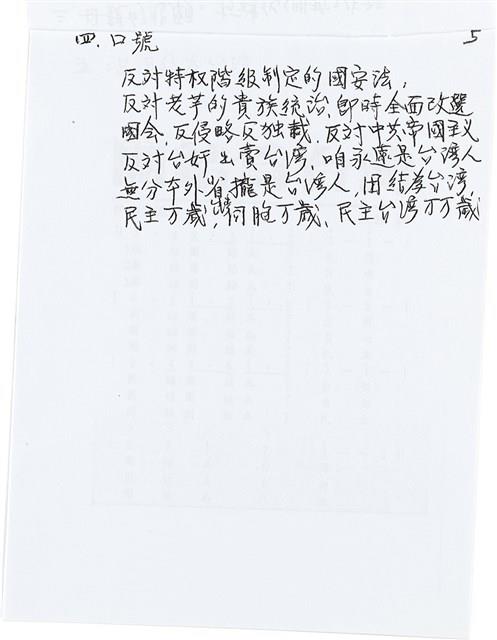 四、口號 5
反対特权階級制定的國安法,
反対老芋的貴族統治、即時全面改選
國会、反侵略反独裁、反対中共帝國主义
反対台奸出賣台湾、咱永遠是台湾人
無分本外省攏是台湾人、团結爲台湾,
民主万歲,同胞万歲、民主台湾万万歲